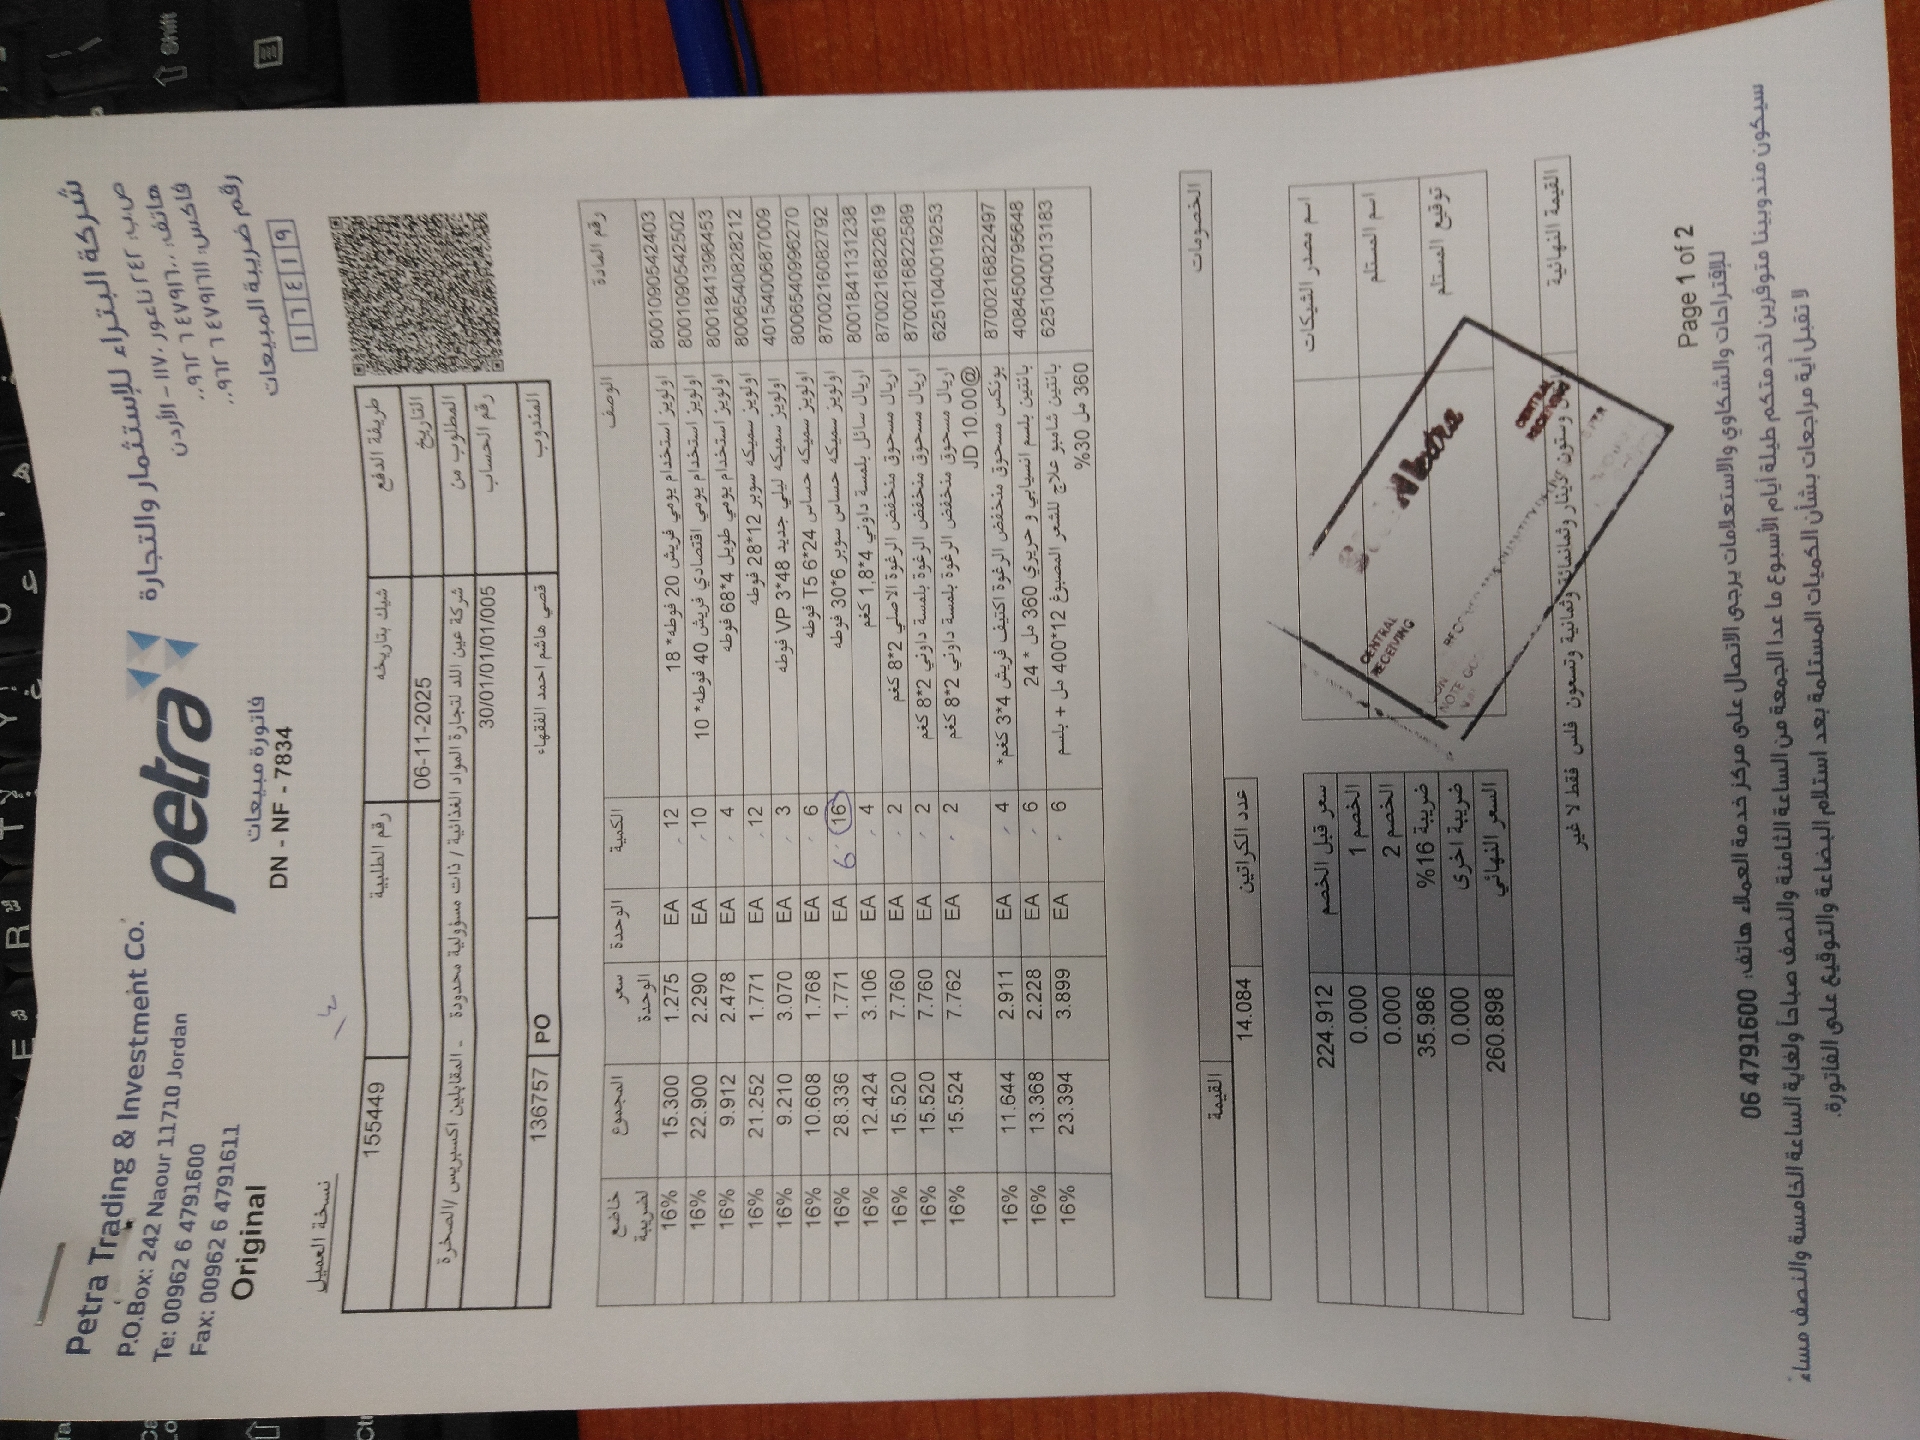 Petra Trading & Investment Co.
P.O.Box: 242 Naour 11710 Jordan
Te: 00962 6 4791600
Fax: 00962 6 4791611
Original
petra
فاتورة مبيعات
DN - NF - 7834
شركة البتراء للإستثمار والتجارة
ص.ب: ٢٤٢ ناعور ١١٧١٠ – الأردن
هاتف: ٠٠٩٦٢ ٦ ٤٧٩١٦٠٠
فاكس: ٠٠٩٦٢ ٦ ٤٧٩١٦١١
رقم ضريبة المبيعات
١١٤١٩
نسخة العميل
طريقة الدفع شيك بتاريخه رقم الطلبية 155449
التاريخ 06-11-2025
المطلوب من شركة عين اللد لتجارة المواد الغذائية / ذات مسؤولية محدودة - المقابلين اكسبريس/الصخرة
رقم الحساب 30/01/01/01/005
المندوب قصي هاشم احمد الفقهاء PO 136757
رقم المادة الوصف الكمية الوحدة سعر الوحدة المجموع خاضع لضريبة
8001090542403 اولويز استخدام يومي فريش 20 فوطه* 18 12 EA 1.275 15.300 16%
8001090542502 اولويز استخدام يومي اقتصادي فريش 40 فوطه* 10 10 EA 2.290 22.900 16%
8001841396453 اولويز استخدام يومي طويل 4*68 فوطه 4 EA 2.478 9.912 16%
8006540828212 اولويز سميكه سوبر 12*28 فوطه 12 EA 1.771 21.252 16%
4015400687009 اولويز سميكه ليلي جديد VP 3*48 فوطه 3 EA 3.070 9.210 16%
8006540996270 اولويز سميكه حساس T5 6*24 فوطه 6 EA 1.768 10.608 16%
8700216082792 اولويز سميكه حساس سوبر 6*30 فوطه 16 6 EA 1.771 28.336 16%
8001841131238 اريال سائل بلمسة داوني 4*1.8 كغم 4 EA 3.106 12.424 16%
8700216822619 اريال مسحوق منخفض الرغوة الاصلي 2*8 كغم 2 EA 7.760 15.520 16%
8700216822589 اريال مسحوق منخفض الرغوة بلمسة داوني 2*8 كغم 2 EA 7.760 15.520 16%
6251040019253 اريال مسحوق منخفض الرغوة بلمسة داوني 2*8 كغم 2 EA 7.762 15.524 16%
@JD 10.00
8700216822497 بونكس مسحوق منخفض الرغوة اكتيف فريش 4*3 كغم* 4 EA 2.911 11.644 16%
4084500795648 بانتين بلسم انسيابي و حريري 360 مل * 24 6 EA 2.228 13.368 16%
6251040013183 بانتين شامبو علاج للشعر المصبوغ 12*400 مل + بلسم 6 EA 3.899 23.394 16%
360 مل 30%
الخصومات القيمة
عدد الكراتين 14.084
سعر قبل الخصم 224.912
الخصم 1 0.000
الخصم 2 0.000
ضريبة 16% 35.986
ضريبة اخرى 0.000
السعر النهائي 260.898
اسم مصدر الشيكات
اسم المستلم
توقيع المستلم
CENTRAL RECEIVING
CENTRAL RECEIVING
القيمة النهائية وستون دينار وثمانمائة وثمانية وتسعون فلس فقط لا غير
Page 1 of 2
للإقتراحات والشكاوي والاستعلامات يرجى الاتصال على مركز خدمة العملاء هاتف: 06 4791600
سيكون مندوبينا متوفرين لخدمتكم طيلة أيام الأسبوع ما عدا الجمعة من الساعة الثامنة والنصف صباحاً ولغاية الساعة الخامسة والنصف مساءً
لا تقبل أية مراجعات بشأن الكميات المستلمة بعد استلام البضاعة والتوقيع على الفاتورة.